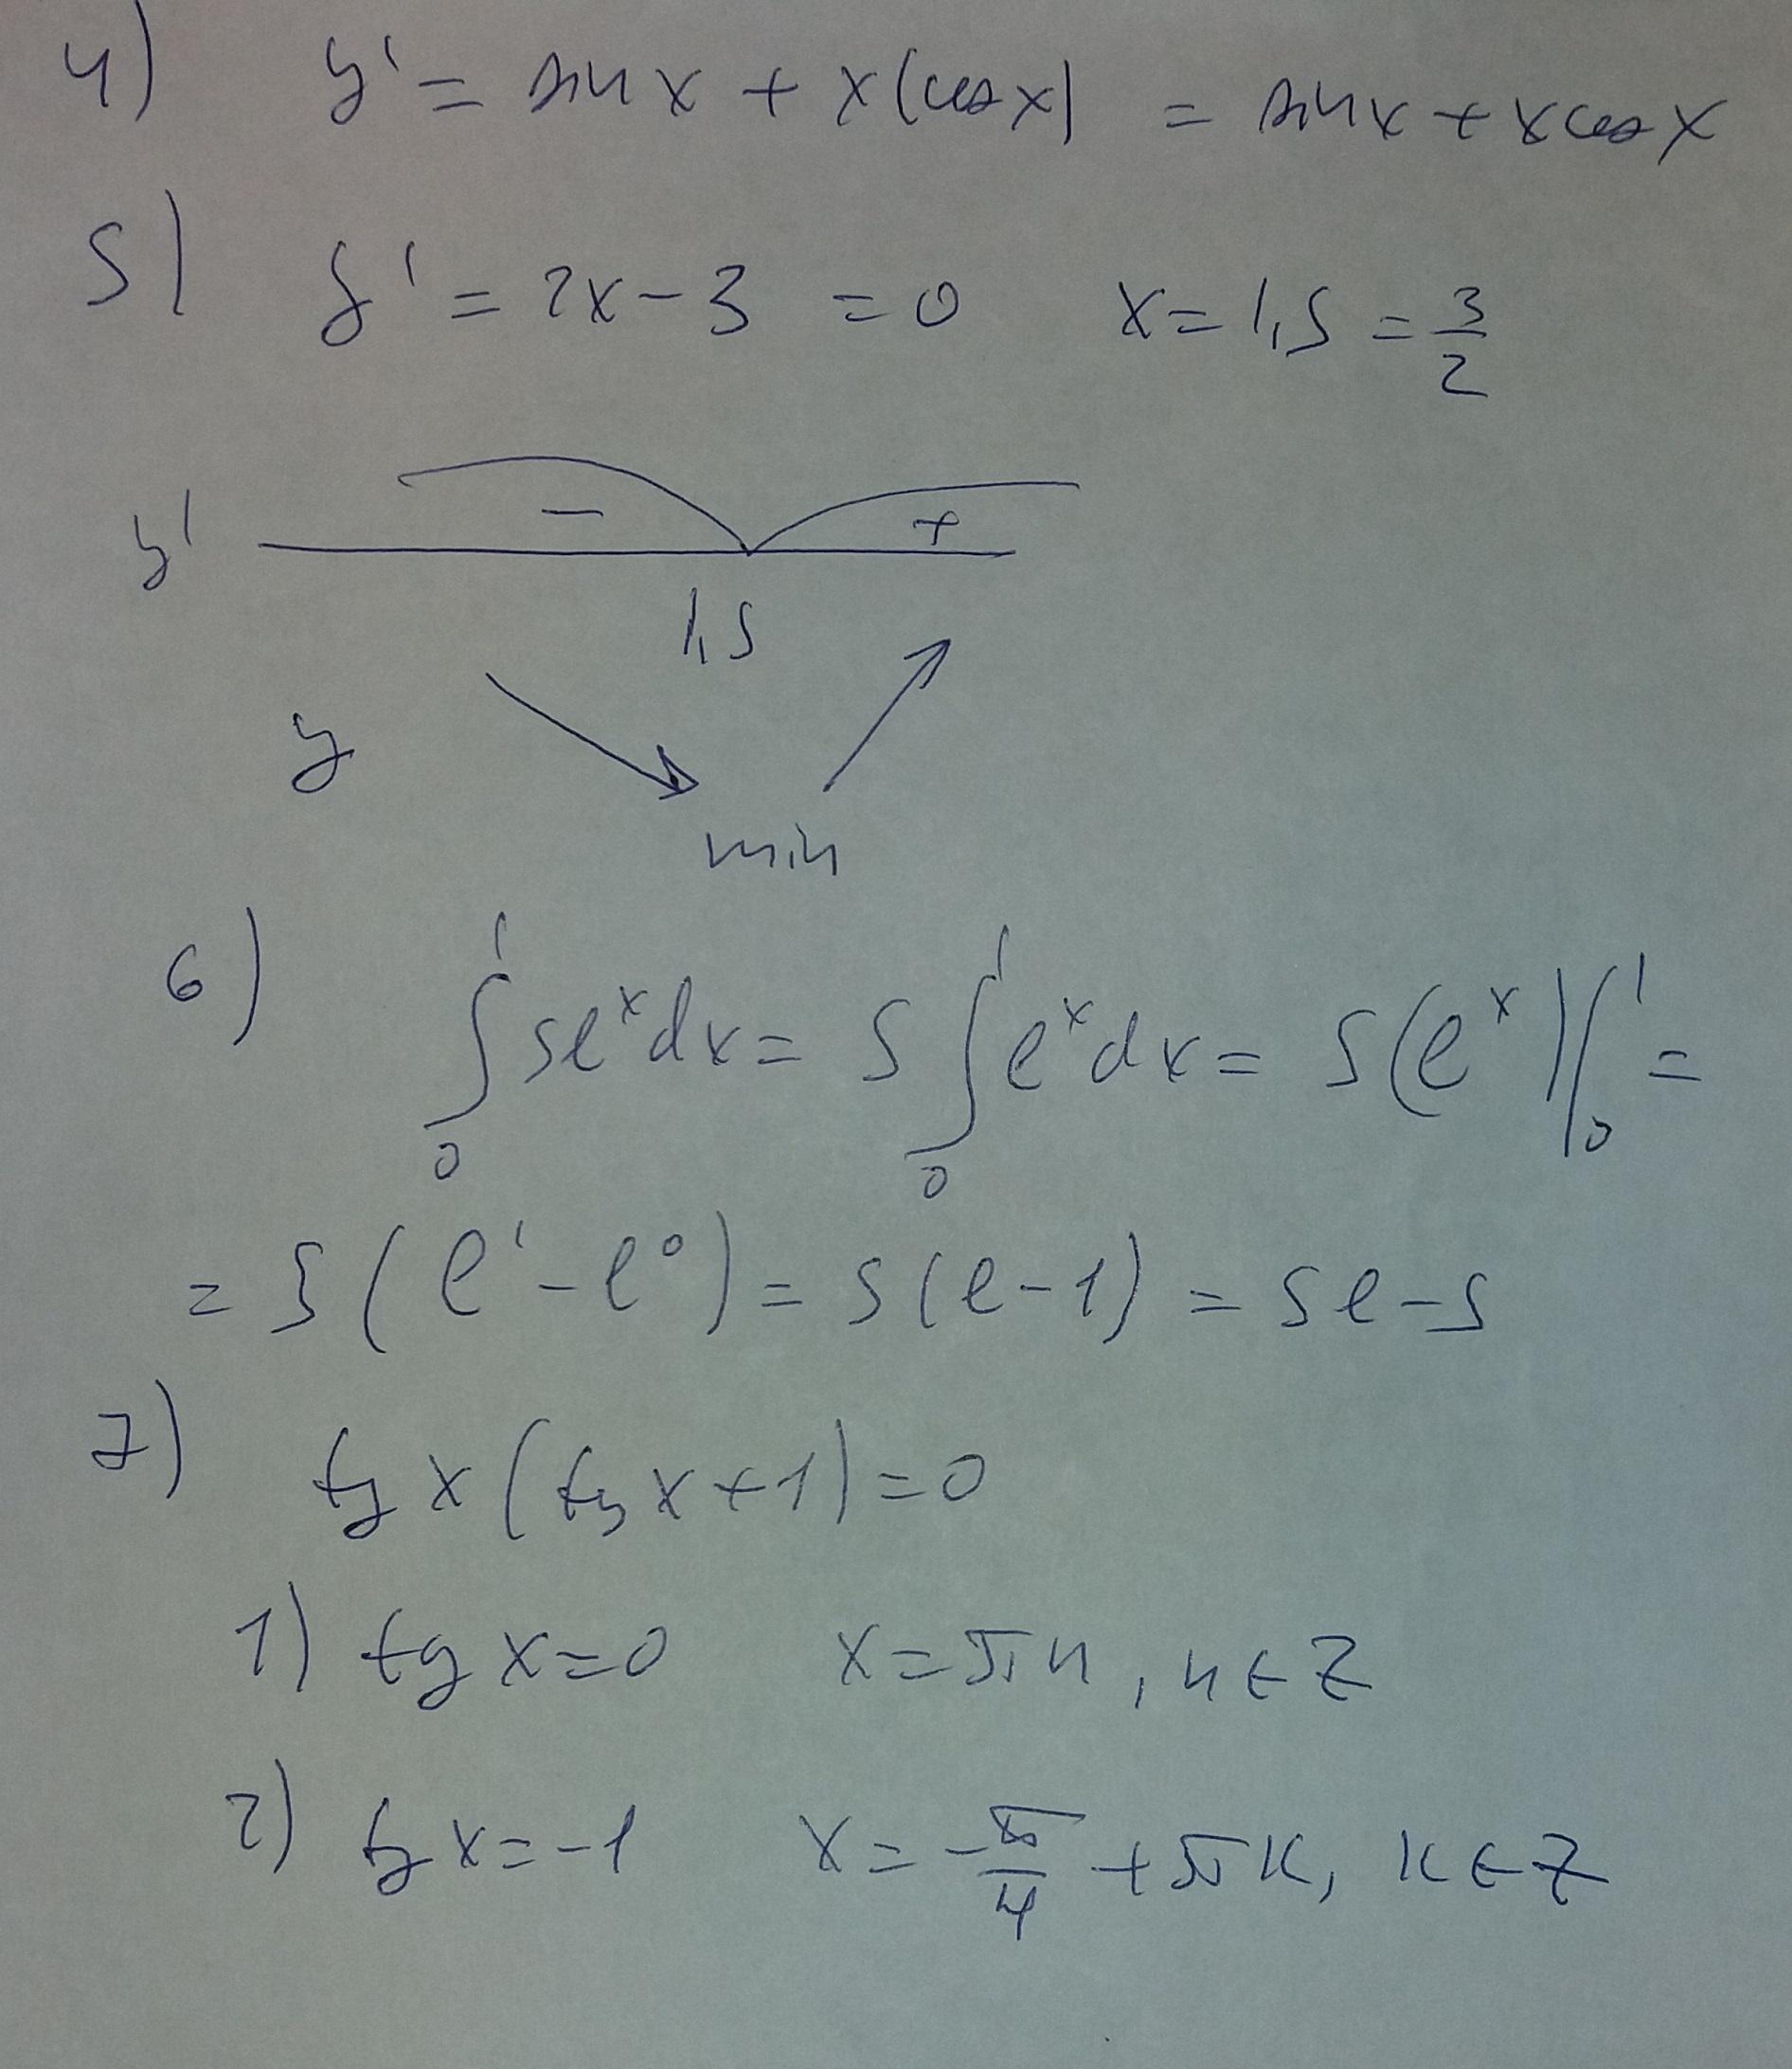 4) y' = sin x + x(cos x) = sin x + x cos x
5) y' = 2x - 3 = 0 x = 1,5 = 3/2
y' - +
1,5
y
min
6) ∫₀¹ 5eˣdx = 5 ∫₀¹ eˣdx = 5(eˣ)|₀¹ =
= 5(e¹ - e⁰) = 5(e - 1) = 5e - 5
7) tg x (tg x + 1) = 0
1) tg x = 0 x = πn, n ∈ Z
2) tg x = -1 x = -π/4 + πk, k ∈ Z